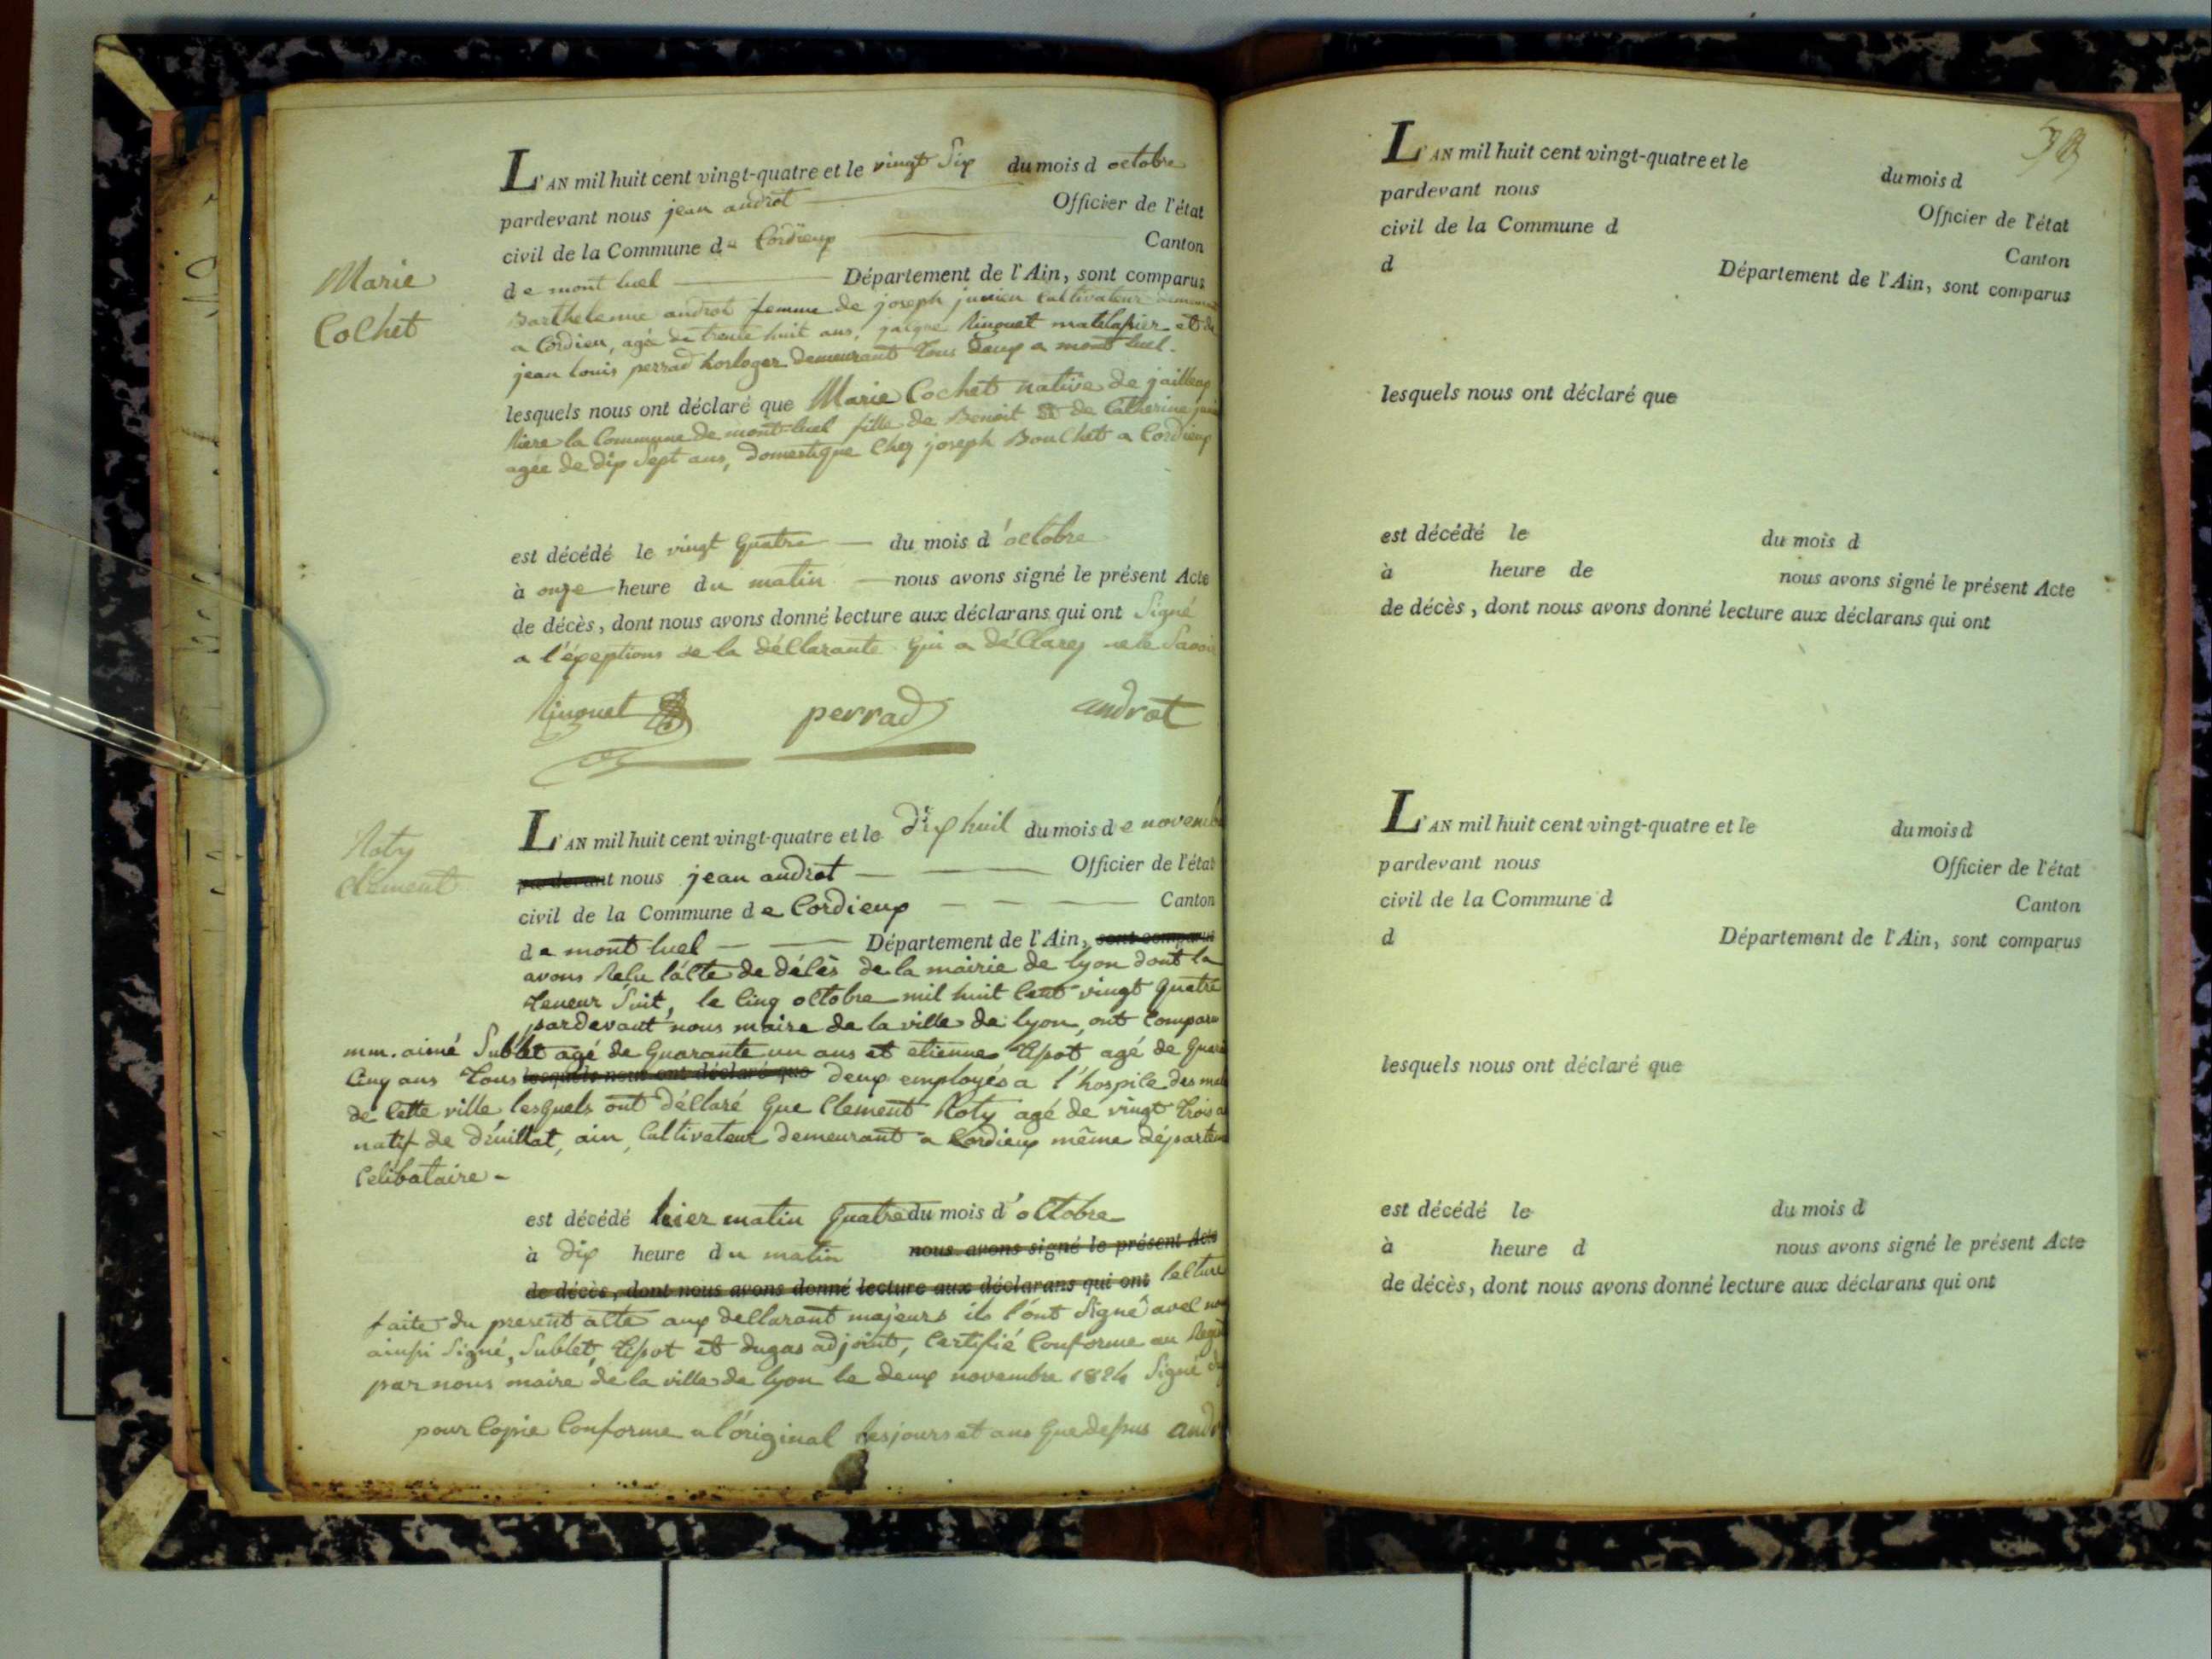 L'AN mil huit cent vingt-quatre et le vingt Six du mois d octobre
pardevant nous jean androt Officier de l'état
civil de la Commune de Cordieux Canton
de mont luel Département de l'Ain, sont comparus
Marie
Colhet
androt femme de joseph junieu Cultivateur
a Cordieu, agée de trente huit ans, jaique Ringuet matelassier et de
jean louis perrad horloger demeurant tous deux a mont luel.
lesquels nous ont déclaré que Marie Cochet native de jailleux
la Commune de mont-luel fille de Benoit et de Catherine
agée de dix Sept ans, domestique Chez joseph Bouchet a Cordieux
est décédé le vingt quatre du mois d'octobre
à onze heure du matin nous avons signé le présent Acte
de décès, dont nous avons donné lecture aux déclarans qui ont Signé
a l'exeptions de la déclarante qui a déclarez ne le Savoir
Ringuet perrad androt
Roty
Clement
L'AN mil huit cent vingt-quatre et le dix huit du mois de novembre
pardevant nous jean androt Officier de l'état
civil de la Commune de Cordieux Canton
de mont luel Département de l'Ain, sont comparus
avons Relu l'acte de décès de la mairie de lyon dont la
teneur Suit, le Cinq octobre mil huit Cent vingt quatre
pardevant nous maire de la ville de lyon, ont Comparu
mm. aimé Sublet agé de quarante un ans et etienne agé de
Cinq ans tous lesquels nous ont déclaré que deux employés a l'hospice des
de Cette ville lesquels ont déclaré que Clement Roty agé de vingt trois
natif de druillat, ain, Cultivateur demeurant a Cordieux même
Celibataire -
est décédé hier matin quatre du mois d'octobre
à dix heure du matin nous avons signé le présent Acte
de décès, dont nous avons donné lecture aux déclarans qui ont lecture
faite du present acte aux declarant majeurs ils l'ont Signé avec
ainsi Signé, Sublet, et dugas adjoint, Certifié Conforme au
par nous maire de la ville de lyon le deux novembre 1824 Signé
pour Copie Conforme a l'original les jours et ans que dessus
L'AN mil huit cent vingt-quatre et le du mois d
pardevant nous Officier de l'état
civil de la Commune d Canton
d Département de l'Ain, sont comparus
lesquels nous ont déclaré que
est décédé le du mois d
à heure de nous avons signé le présent Acte
de décès, dont nous avons donné lecture aux déclarans qui ont
L'AN mil huit cent vingt-quatre et le du mois d
pardevant nous Officier de l'état
civil de la Commune d Canton
d Département de l'Ain, sont comparus
lesquels nous ont déclaré que
est décédé le du mois d
à heure d nous avons signé le présent Acte
de décès, dont nous avons donné lecture aux déclarans qui ont